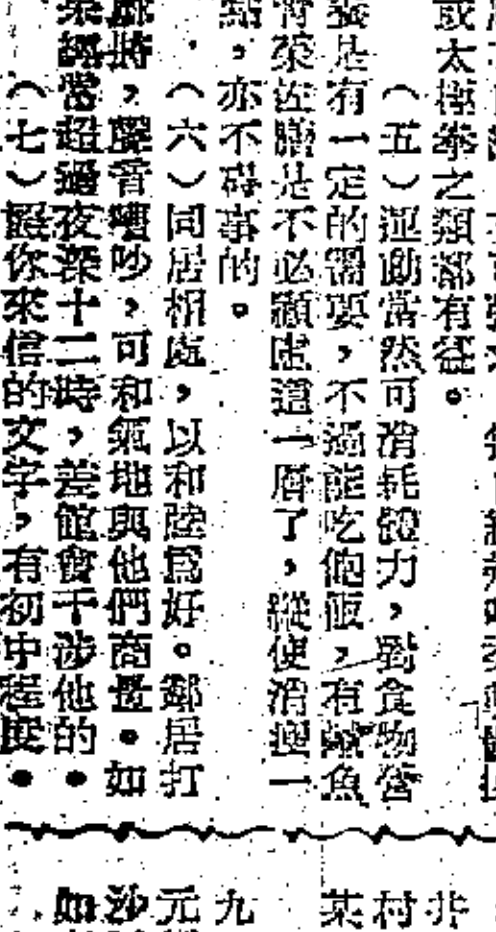 或太極拳之類都有益。
（五）運動當然可消耗體力，對食物營
養是有一定的需要，不過能吃飽飯，有鹹魚
青菜佐膳是不必顧慮這一層了，縱使消瘦一
點，亦不碍事的。
（六）同居相處，以和陸爲好。鄰居打
麻將，聲音嘈吵，可和氣地與他們商量。如
果經常超過夜深十二時，差館會干涉他的。
（七）照你來信的文字，有初中程度。
井
村
某
九
元
沙
如